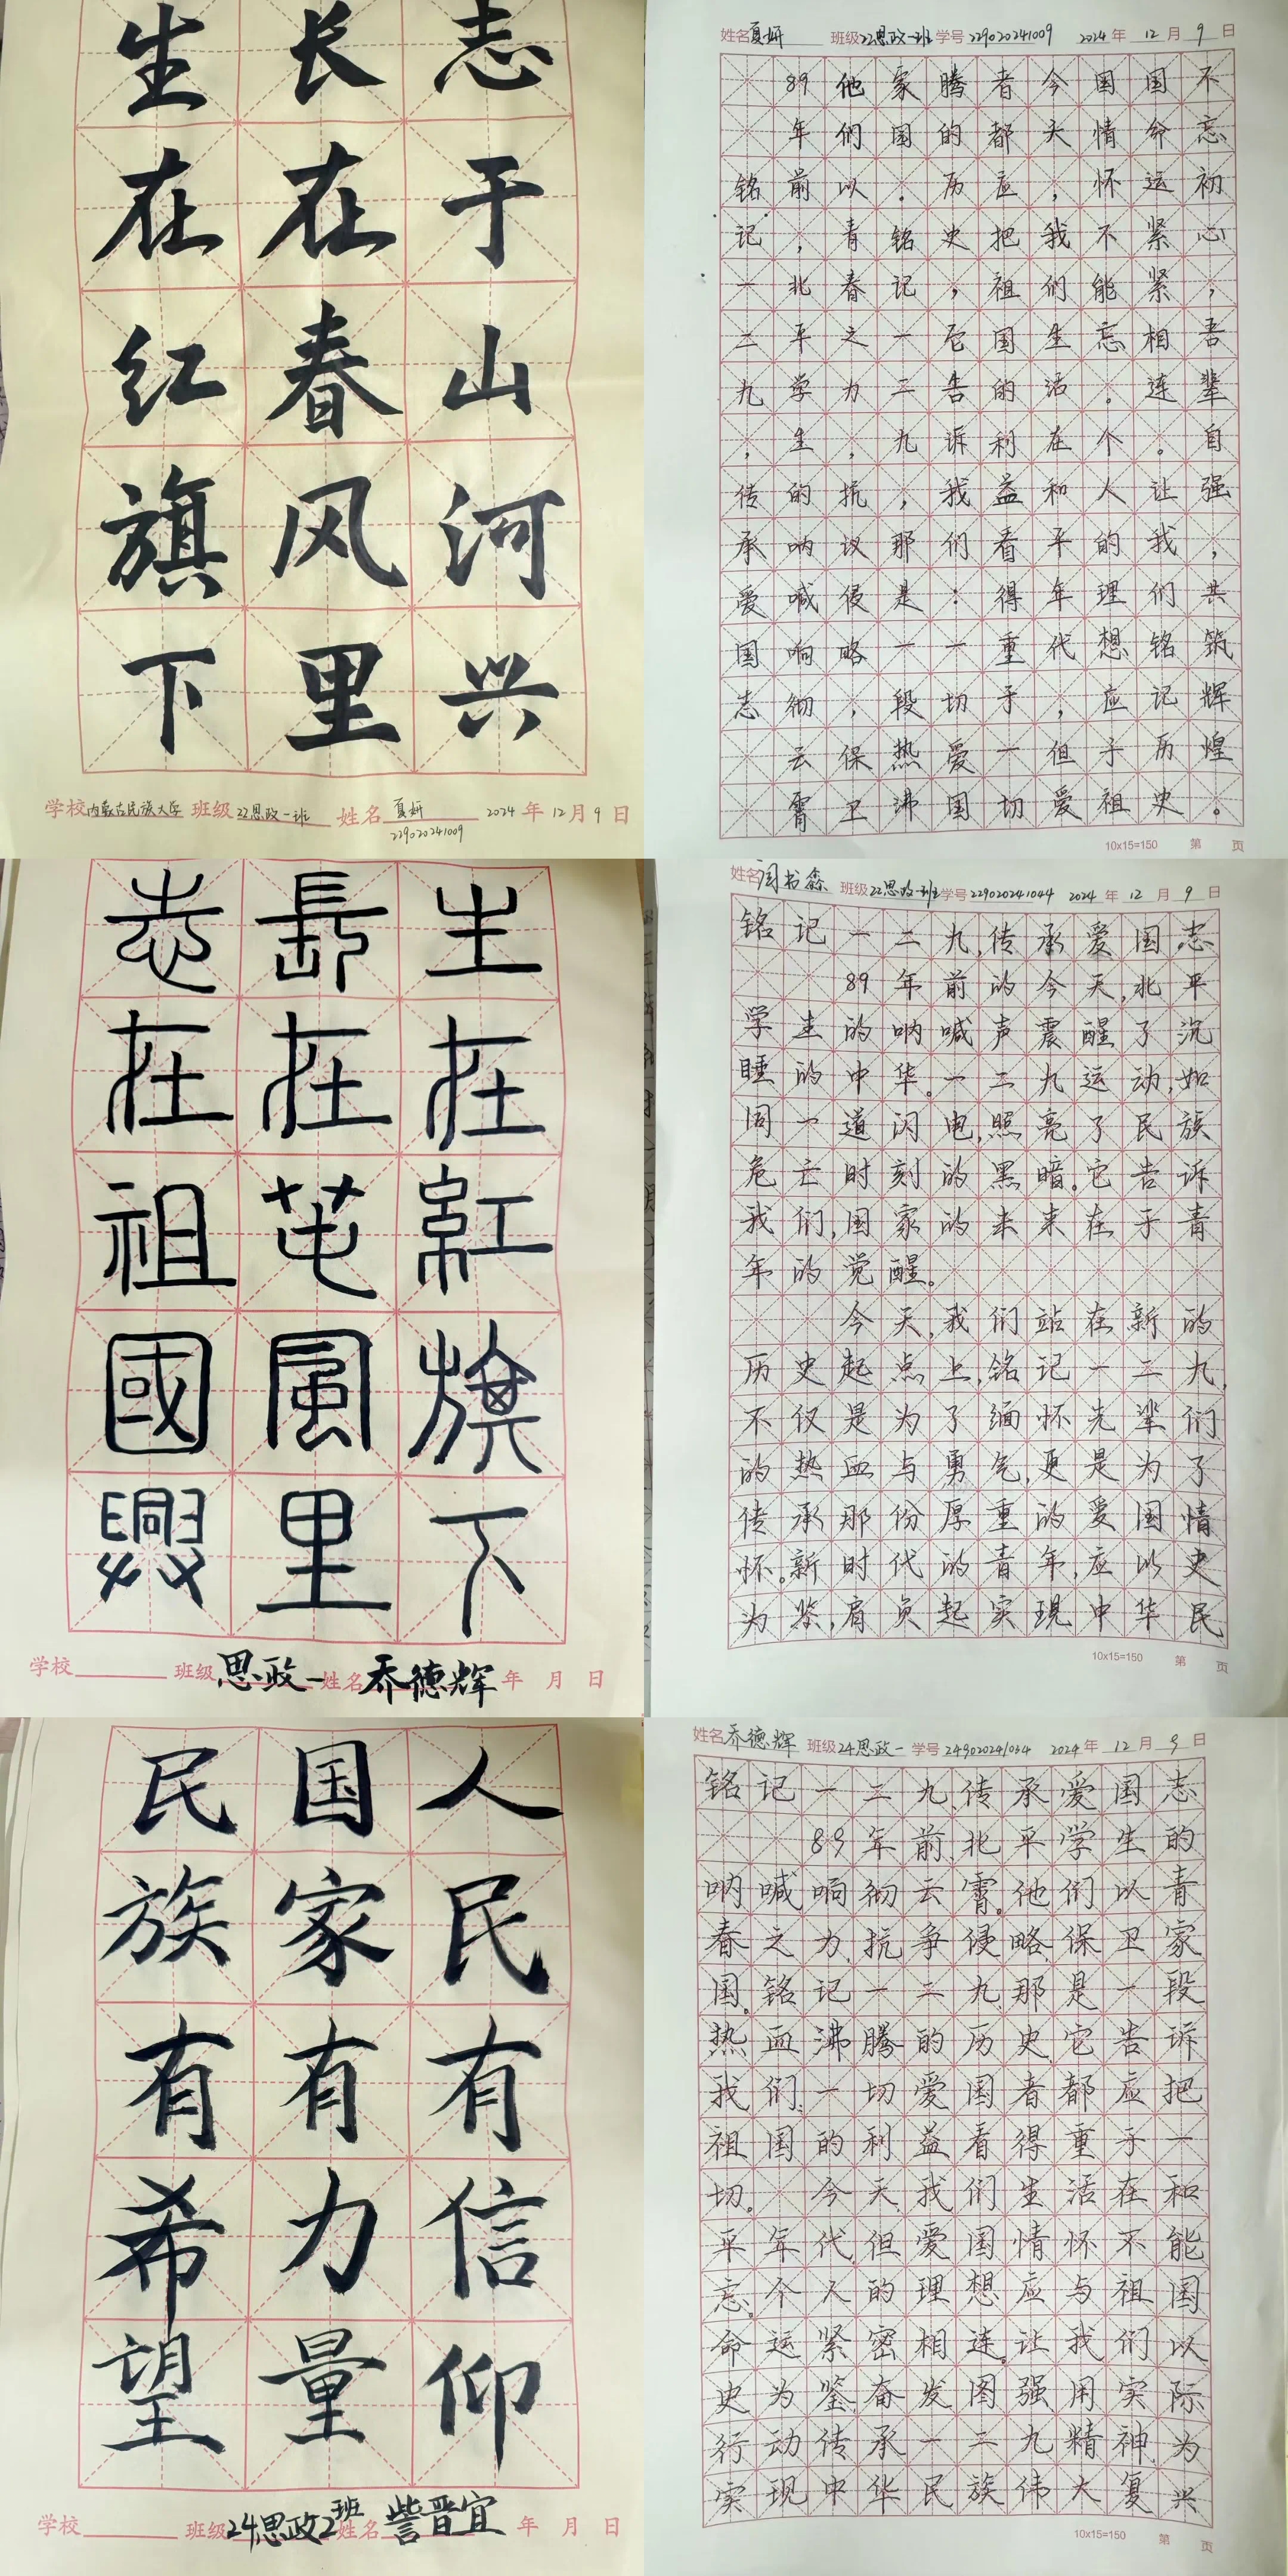 生在红旗下
长在春风里
志于山河兴
学校 内蒙古民族大学 班级 22思政一班 姓名 夏妍 2024 年 12 月 9 日
229020241009
姓名 夏妍 班级 22思政一班 学号 229020241009 2024 年 12 月 9 日
铭记一二九，传承爱国志
89年前，北平学生的呐喊响彻云霄
他们以青春之力，抗议侵略，保卫
家国。铭记一二九，那是一段热沸
腾的历史，它告诉我们：一切爱国
者都应把祖国的利益看得重于一切
今天，我们生活在和平年代，但爱
国情怀不能忘。个人的理想应于祖
国命运紧紧相连。让我们铭记历史
不忘初心，吾辈自强，共筑辉煌。
10x15=150 第 页
生在紅旗下
長在芚風里
志在祖國興
学校 班级 思政一 姓名 乔德辉 年 月 日
姓名 闫书淼 班级 22思政一班 学号 229020241044 2024 年 12 月 9 日
铭记一二九,传承爱国志
89年前的今天,北平
学生的呐喊声震醒了沉
睡的中华。一二九运动,如
同一道闪电,照亮了民族
危亡时刻的黑暗。它告诉
我们,国家的未来在于青
年的觉醒。
今天,我们站在新的
历史起点上,铭记一二九,
不仅是为了缅怀先辈们
的热血与勇气,更是为了
传承那份厚重的爱国情
怀。新时代的青年,应以史
为鉴,肩负起实现中华民
10x15=150 第 页
人民有信仰
国家有力量
民族有希望
学校 班级 24思政2班 姓名 訾晋宜 年 月 日
姓名 乔德辉 班级 24思政一 学号 249020241064 2024 年 12 月 9 日
铭记一二九,传承爱国志
89年前,北平学生的
呐喊响彻云霄。他们以青
春之力,抗争侵略,保卫家
国。铭记一二九,那是一段
热血沸腾的历史,它告诉
我们,一切爱国者都应把
祖国的利益看得重于一
切。今天,我们生活在和
平年代,但爱国情怀不能
忘。个人的理想应与祖国
命运紧密相连,让我们以
史为鉴,奋发图强,用实际
行动传承一二九精神,为
实现中华民族伟大复兴
10x15=150 第 页